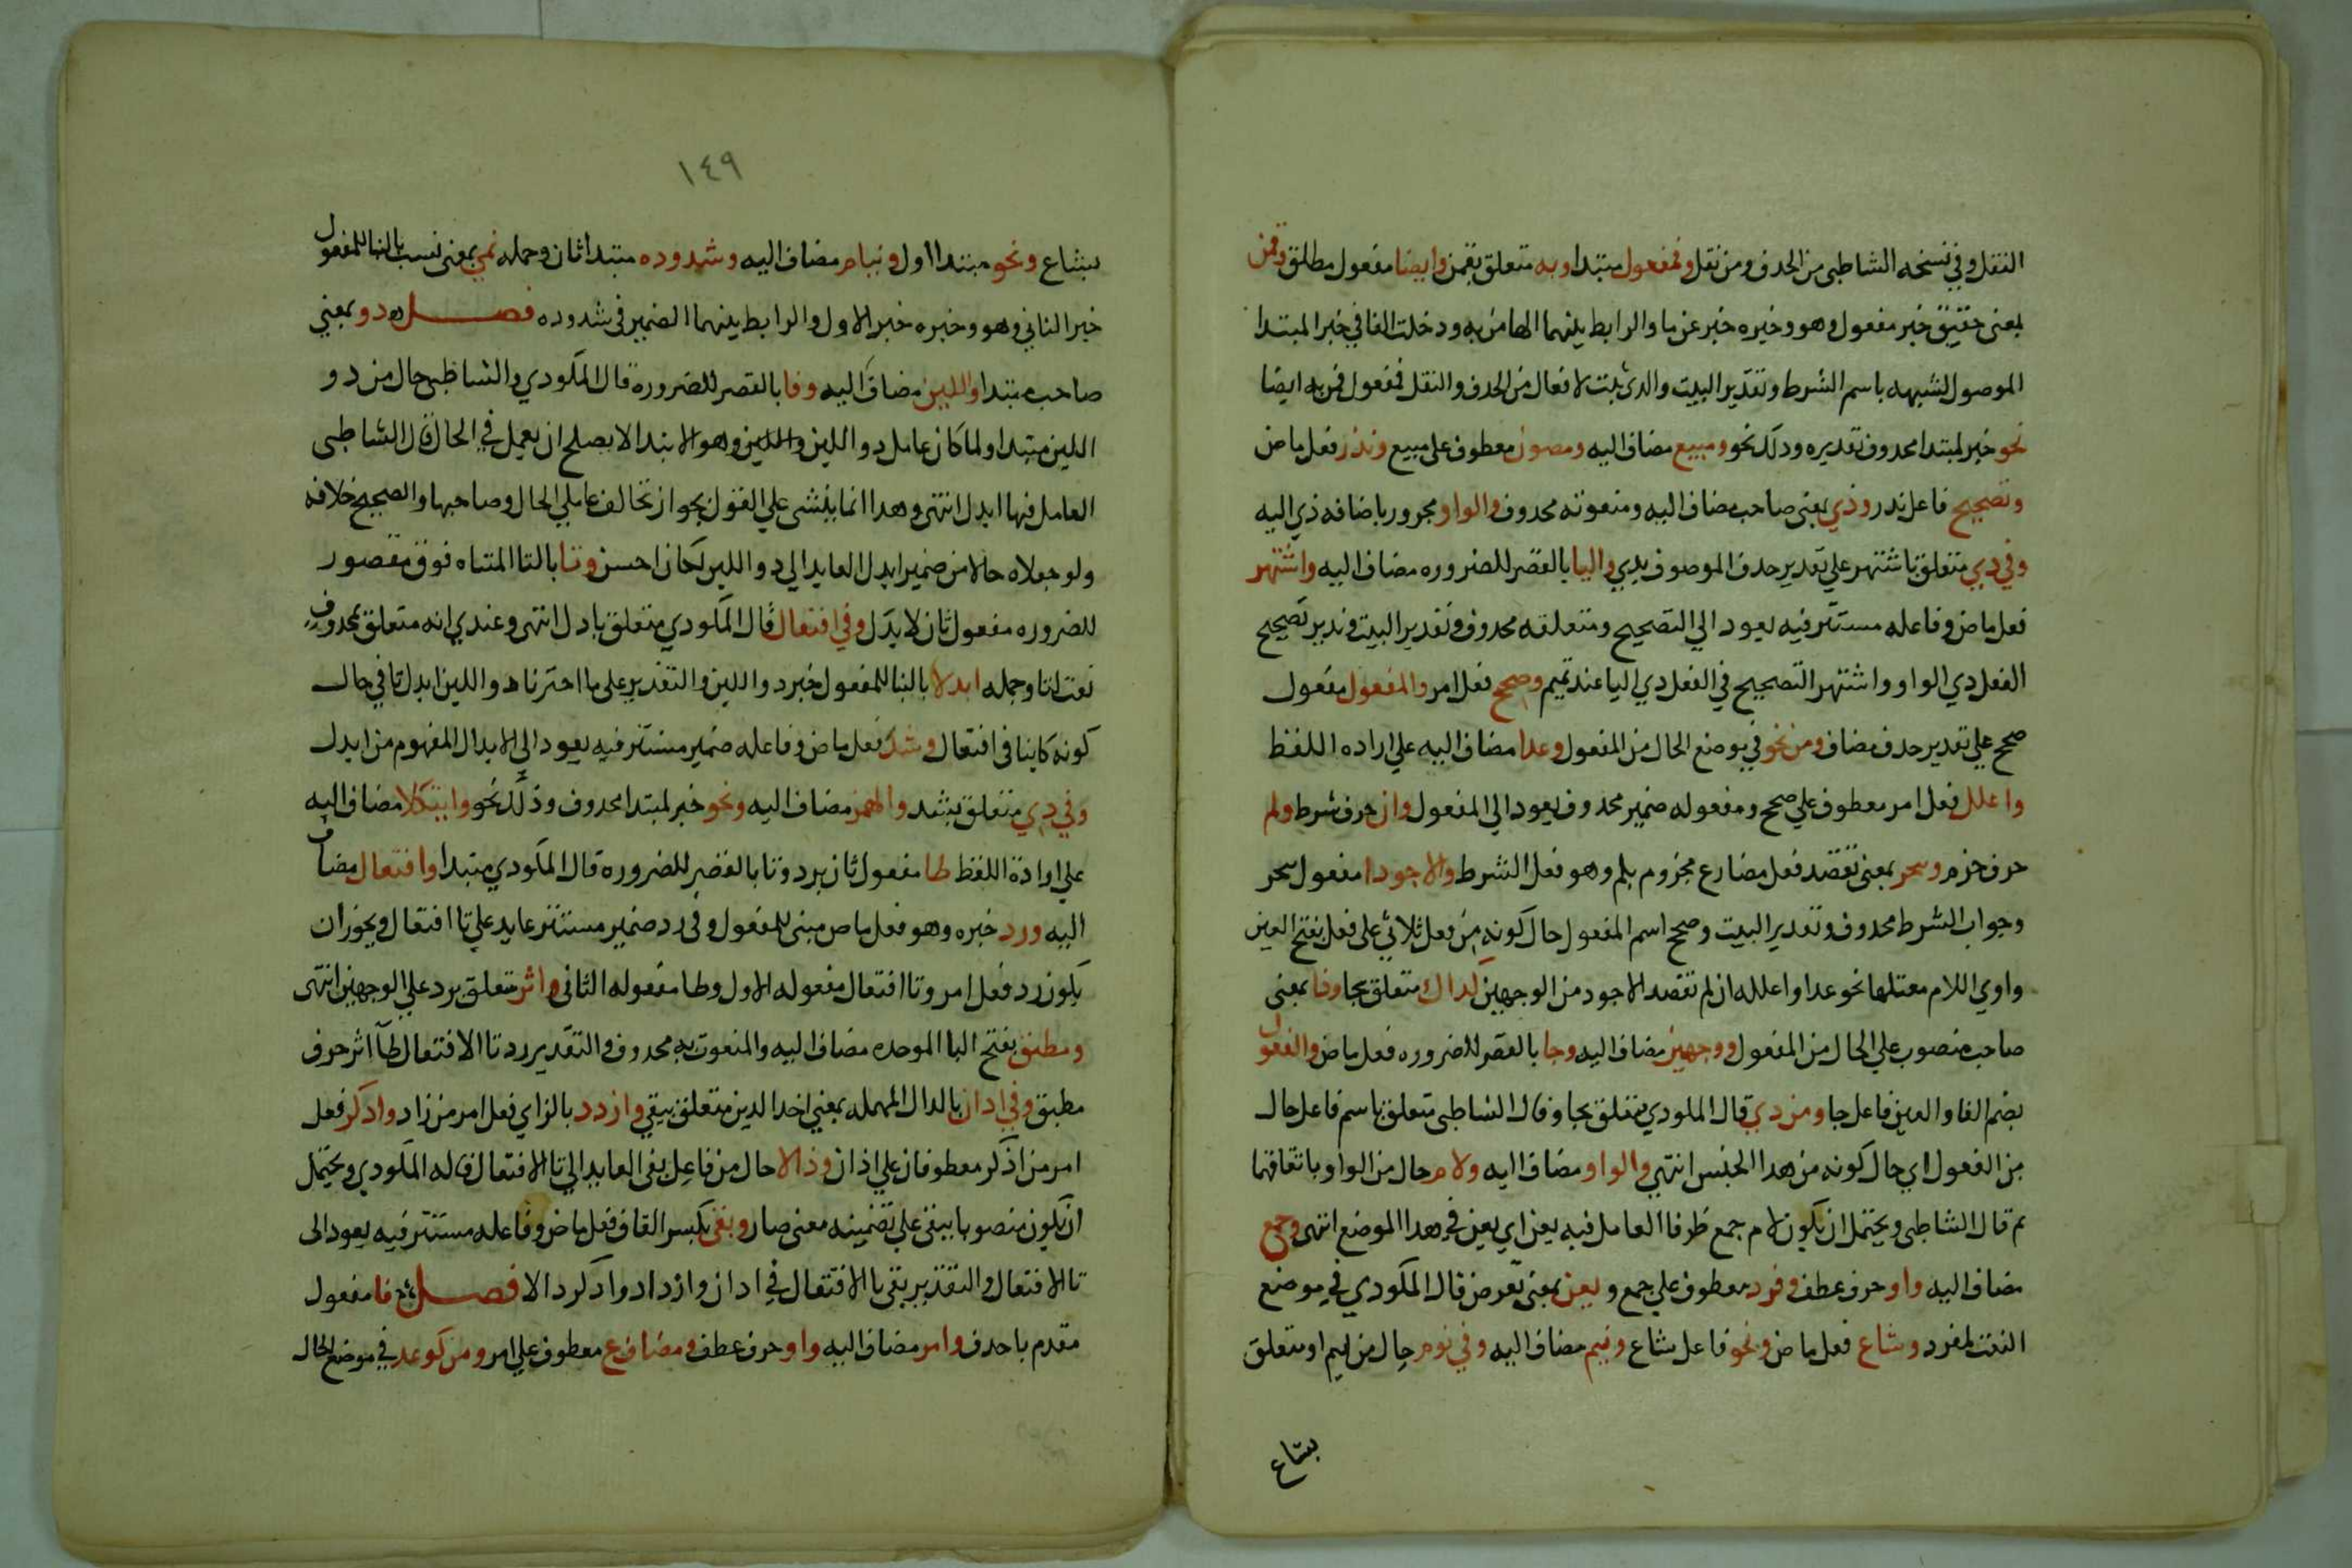 النقل وفي نسخه الشاطبي من الحدف ومن نقل ومفعول مبتدا وبه متعلق بقمن وايضا مفعول مطلق وقمن
بمعنى حقيق خبر مفعول وهو وخبره خبر عن ما والرابط بينهما الها من به ودخلت الفا في خبر المبتدا
الموصول لشبهه باسم الشرط وتقدير البيت والدي ثبت لافعال من الحدف والنقل فمفعول قمن به ايضا
نحو خبر لمبتدا محدوف تقديره ودلك نحو ومبيع مضاف اليه ومصون معطوف على مبيع وندر فعل ماض
وتصحيح فاعل ندر وذي بمعنى صاحب مضاف اليه ومنعوته محدوف والواو مجرور باضافه ذي اليه
وفي دي متعلق باشتهر علي تقدير حدف الموصوف بدي واليا بالقصر للضروره مضاف اليه واشتهر
فعل ماض وفاعله مستتر فيه يعود الي التصحيح ومتعلقه محدوف وتقدير البيت وندر تصحيح
الفعل دي الواو واشتهر التصحيح في الفعل دي اليا عند تميم وصحح فعل امر والمفعول مفعول
صحح علي تقدير حدف مضاف ومن نحو في موضع الحال من المفعول وعدا مضاف اليه علي اراده اللفظ
واعلل فعل امر معطوف علي صحح ومفعوله ضمير محدوف يعود الي المفعول وان حرف شرط ولم
حرف جزم وتتحر بمعنى تقصد فعل مضارع مجزوم بلم وهو فعل الشرط والاجودا مفعول تتحر
وجواب الشرط محدوف وتقدير البيت وصحح اسم المفعول حال كونه من فعل ثلاثي على فعل بفتح العين
واوي اللام معتلها نحو عدا واعلله ان لم تقصد الاجود من الوجهين كداك متعلق بجا وذا بمعنى
صاحب منصوب علي الحال من المفعول ووجهين مضاف اليه وجا بالقصر للضروره فعل ماض والفعول
بضم الفا والعين فاعل جا ومن دي قال المكودي متعلق بجا وقال الشاطبي متعلق باسم فاعل حال
من الفعول اي حال كونه من هدا الجنس انتهي والواو مضاف اليه ولام حال من الواو باتفاقهما
ثم قال الشاطبي ويحتمل ان يكون لام جمع ظرفا العامل فيه يعن اي يعن في هدا الموضع انتهى وجمع
مضاف اليه واو حرف عطف وفرد معطوف علي جمع ويعن بمعنى يعرض قال المكودي في موضع
النعت لمفرد وشاع فعل ماض ونحو فاعل شاع ونيم مضاف اليه وفي نوم حال من نيم او متعلق
بشاع
١٤٩
بشاع ونحو مبتدا اول ونيام مضاف اليه وشدوده مبتدا ثان وجمله نمي بمعنى نسب بالبنا للمفعول
خبر الثاني وهو وخبره خبر الاول والرابط بينهما الضمير في شدوده فصل دو بمعني
صاحب مبتدا واللين مضاف اليه وفا بالقصر للضروره قال المكودي والشاطبي حال من دو
اللين مبتدا ولما كان عامل دو اللين واللين وهو الابتدا لا يصلح ان يعمل في الحال قال الشاطبي
العامل فيها ابدل انتهى وهدا انما يتمشى علي القول بجواز تخالف عاملي الحال وصاحبها والصحيح خلافه
ولو جعلاه حالا من ضمير ابدل العايد الي دو اللين لكان احسن وتا بالتا المتناه فوق مقصور
للضروره مفعول ثان لابدل وفي افتعال قال المكودي متعلق بابدل انتهى وعندي انه متعلق بمحدوف
نعت لتا وجمله ابدلا بالبنا للمفعول خبر دو اللين والتقدير علي ما اخترناه دو اللين ابدل تا في حال
كونه كاينا في افتعال وشد فعل ماض وفاعله ضمير مستتر فيه يعود الي الابدال المفهوم من ابدل
وفي دي متعلق بشد والهمز مضاف اليه ونحو خبر لمبتدا محدوف وذلك نحو وايتكلا مضاف اليه
علي ارادة اللفظ طا مفعول ثان برد وتا بالقصر للضروره قال المكودي مبتدا وافتعال مضاف
اليه ورد خبره وهو فعل ماض مبنى للمفعول وفي رد ضمير مستتر عايد علي تا افتعال ويجوز ان
يكون رد فعل امر وتا افتعال مفعوله الاول وطا مفعوله الثاني واثر متعلق برد علي الوجهين انتهى
ومطبق بفتح البا الموحده مضاف اليه والمنعوت به محدوف والتقدير رد تا الافتعال طا اثر حرف
مطبق وفي ادان بالدال المهمله بمعني اخد الدين متعلق ببقي وازدد بالزاي فعل امر من زاد وادكر فعل
امر من اذكر معطوفان علي اذان وذالا حال من فاعل بقي العايد الي تا الافتعال قاله المكودي ويحتمل
ان يكون منصوبا ببقى علي تضمينه معنى صار وبقى بكسر القاف فعل ماض وفاعله مستتر فيه يعود الى
تا الافتعال والتقدير بقي تا الافتعال في ادان وازداد وادكر دالا فصل فا مفعول
مقدم باحدف وامر مضاف اليه واو حرف عطف ومضارع معطوف علي امر ومن كوعد في موضع الحال